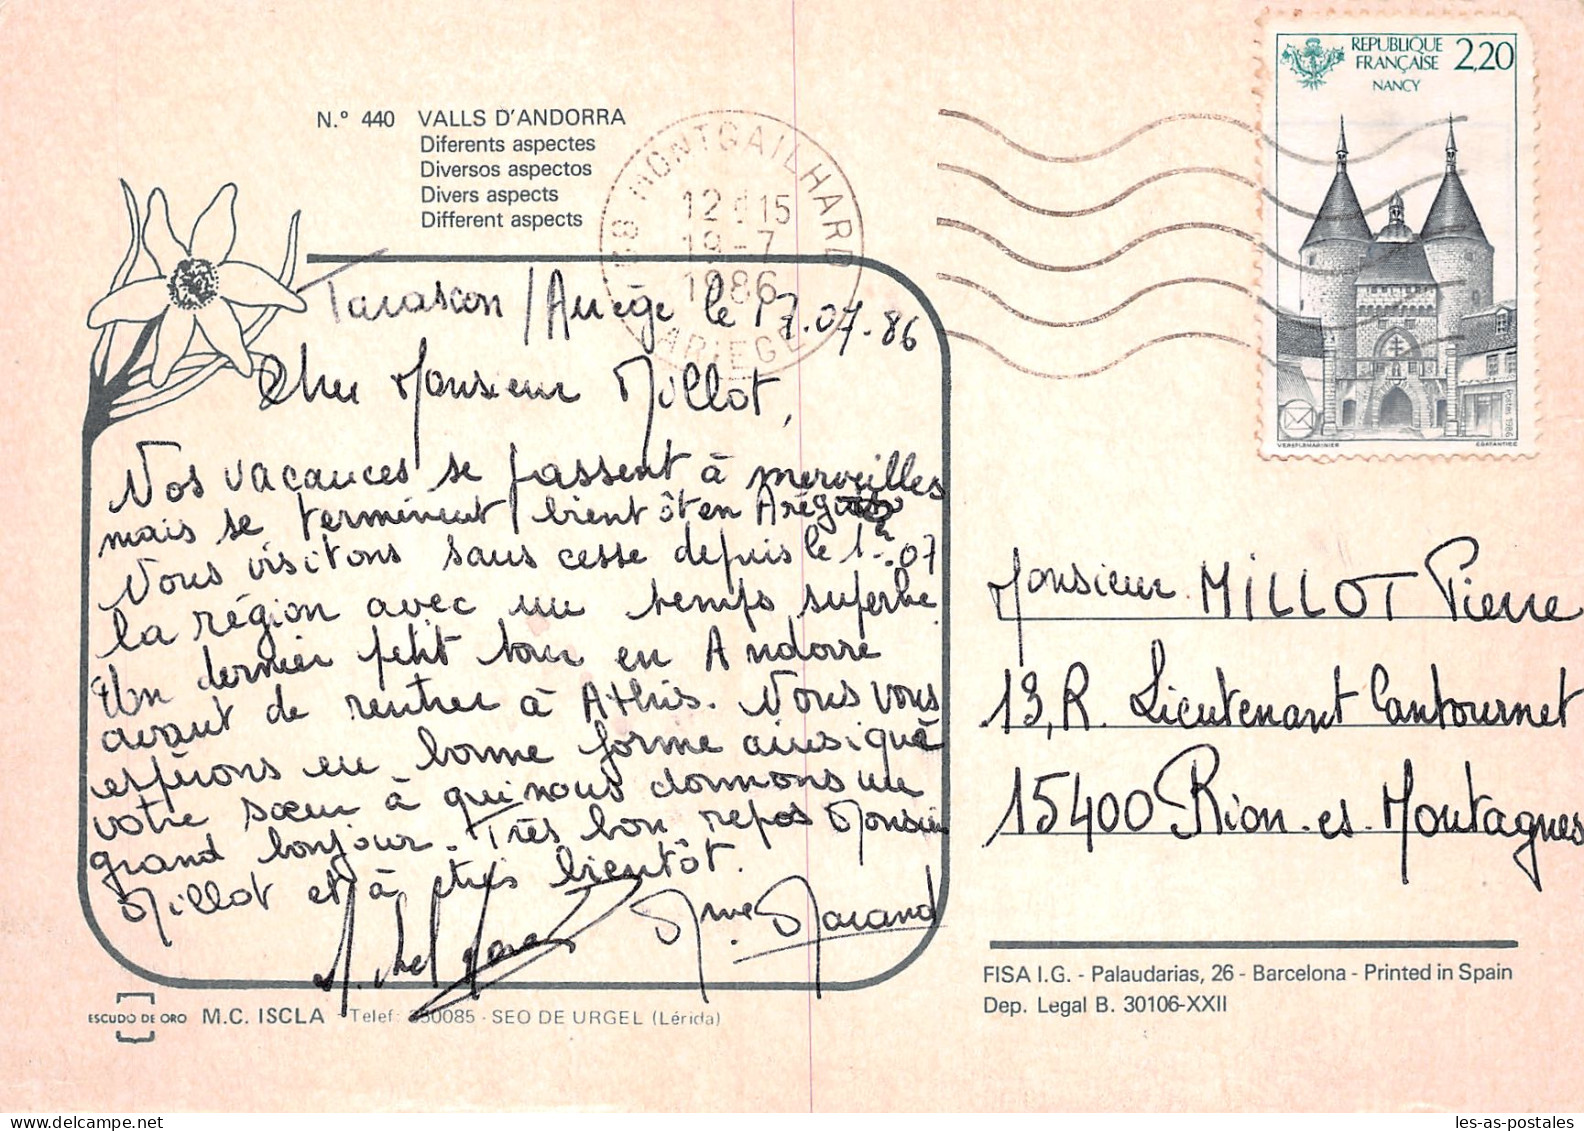 N.º 440 VALLS D'ANDORRA
Diferents aspectes
Diversos aspectos
Divers aspects
Different aspects
MONTGAILHARD
12 15
19-7
1986
ARIEGE
REPUBLIQUE
FRANÇAISE
2,20
NANCY
POSTES 1986
Tarascon / Ariège le 17.07.86
Cher Monsieur Millot,
Nos vacances se passent à merveilles
mais se terminent bientôt en Ariège
Nous visitons sans cesse depuis le 1er.07
la région avec un temps superbe.
Un dernier petit tour en Andorre
avant de rentrer à Athis. Nous vous
espérons en bonne forme ainsi que
votre sœur à qui nous donnons un
grand bonjour. Très bon repos Monsieur
Millot et à très bientôt.
Mme Marand
Monsieur MILLOT Pierre
13, R. Lieutenant Cantournet
15400 Riom-es-Montagnes
ESCUDO DE ORO M.C. ISCLA - Telef: 350085 - SEO DE URGEL (Lérida)
FISA I.G. - Palaudarias, 26 - Barcelona - Printed in Spain
Dep. Legal B. 30106-XXII
les-as-postales.com